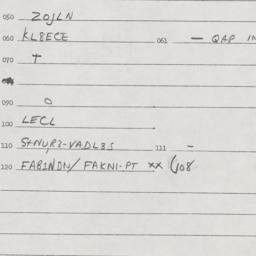 050 ZOJLN
060 KL8ECE 061 — QAP IN
070 T
090 O
100 LECL
110 S+NUR3-VADL3S 111 -
120 FABINDN/FAKNI.PT xx (108